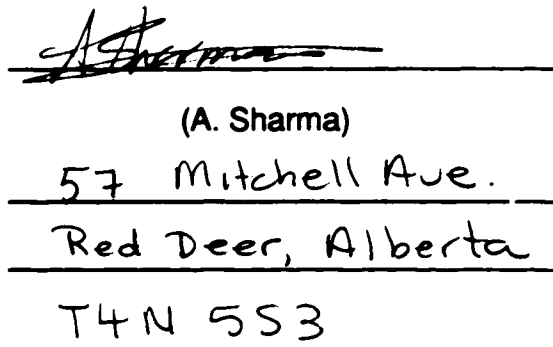 A Sharma
(A. Sharma)
57 Mitchell Ave.
Red Deer, Alberta
T4N 5S3